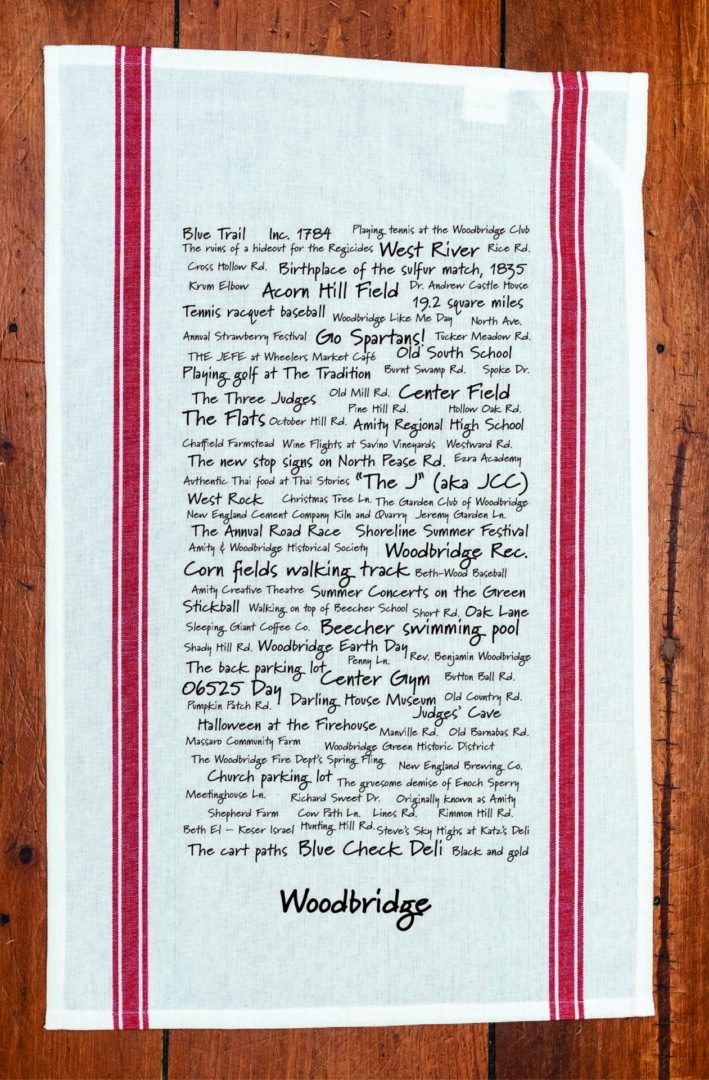 Blue Trail Inc. 1784 Playing tennis at the Woodbridge Club
The ruins of a hideout for the Regicides West River Rice Rd.
Cross Hollow Rd. Birthplace of the sulfur match, 1835
Krum Elbow Acorn Hill Field Dr. Andrew Castle House
19.2 square miles
Tennis racquet baseball Woodbridge Like Me Day North Ave.
Annual Strawberry Festival Go Spartans! Tucker Meadow Rd.
THE JEFE at Wheelers Market Café Old South School
Playing golf at The Tradition Burnt Swamp Rd. Spoke Dr.
The Three Judges Old Mill Rd. Center Field
Pine Hill Rd. Hollow Oak Rd.
The Flats October Hill Rd. Amity Regional High School
Chatfield Farmstead Wine Flights at Savino Vineyards Westward Rd.
The new stop signs on North Pease Rd. Ezra Academy
Authentic Thai food at Thai Stories "The J" (aka JCC)
West Rock Christmas Tree Ln. The Garden Club of Woodbridge
New England Cement Company Kiln and Quarry Jeremy Garden Ln.
The Annual Road Race Shoreline Summer Festival
Amity & Woodbridge Historical Society Woodbridge Rec.
Corn fields walking track Beth-Wood Baseball
Amity Creative Theatre Summer Concerts on the Green
Stickball Walking on top of Beecher School Short Rd. Oak Lane
Sleeping Giant Coffee Co. Beecher swimming pool
Shady Hill Rd. Woodbridge Earth Day
Penny Ln. Rev. Benjamin Woodbridge
The back parking lot Center Gym Button Ball Rd.
06525 Day Darling House Museum Old Country Rd.
Pumpkin Patch Rd. Judges' Cave
Halloween at the Firehouse Manville Rd. Old Barnabas Rd.
Massaro Community Farm Woodbridge Green Historic District
The Woodbridge Fire Dept's Spring Fling New England Brewing Co.
Church parking lot The gruesome demise of Enoch Sperry
Meetinghouse Ln. Richard Sweet Dr. Originally known as Amity
Shepherd Farm Cow Path Ln. Lines Rd. Rimmon Hill Rd.
Beth El – Keser Israel Hunting Hill Rd. Steve's Sky Highs at Katz's Deli
The cart paths Blue Check Deli Black and gold
Woodbridge